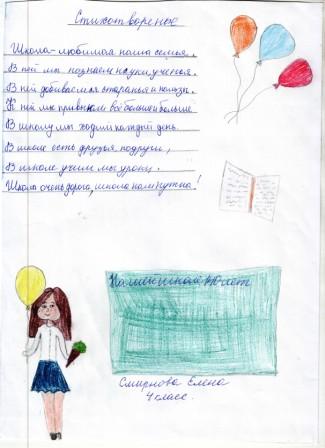 Стихотворение
Школа - любимая наша семья.
В ней мы познаем науки, ученья.
В ней добиваемся старанья и
К ней мы привыкаем всё больше и больше
В школу мы ходим каждый день.
В школе есть друзья, подруги,
В школе учим мы уроки.
Школа очень дорога, школа нам нужна!
Нашей школе 40 лет
Смирнова Елена
4 класс.